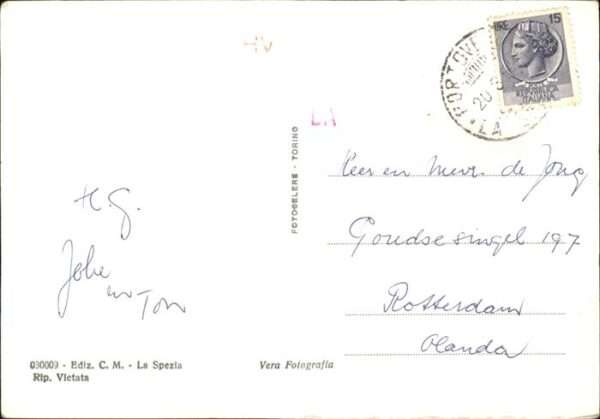 LIRE 15
REPUBBLICA
ITALIANA
PORTOVE
20
LA
LA
FOTOCELERE - TORINO
Heer en Mevr. de Jong
Goudsesingel 197
Rotterdam
Olanda
H.G.
en Ton
090009 - Ediz. C. M. - La Spezia
Rip. Vietata
Vera Fotografia